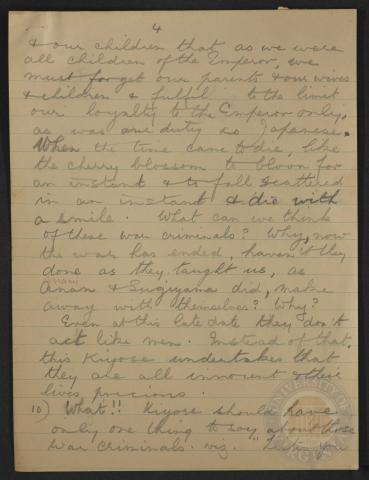 4
& our children that as we were
all children of the Emperor, we
must forget our parents & our wives
& children & fulfil to the limit
our loyalty to the Emperor only,
as was our duty as Japanese.
When the time came to die, like
the cherry blossom to bloom for
an instant & to fall scattered
in an instant & die with
a smile. What can we think
of these war criminals? Why, now
the war has ended, haven't they
done as they taught us, as
Anan & Sugiyama did, make
away with themselves? Why?
Even at this late date they don't
act like men. Instead of that,
this Kiyose undertakes that
they are all innocent & their
lives precious.
10) What!! Kiyose should have
only one thing to say about those
War Criminals. viz. "Listen you